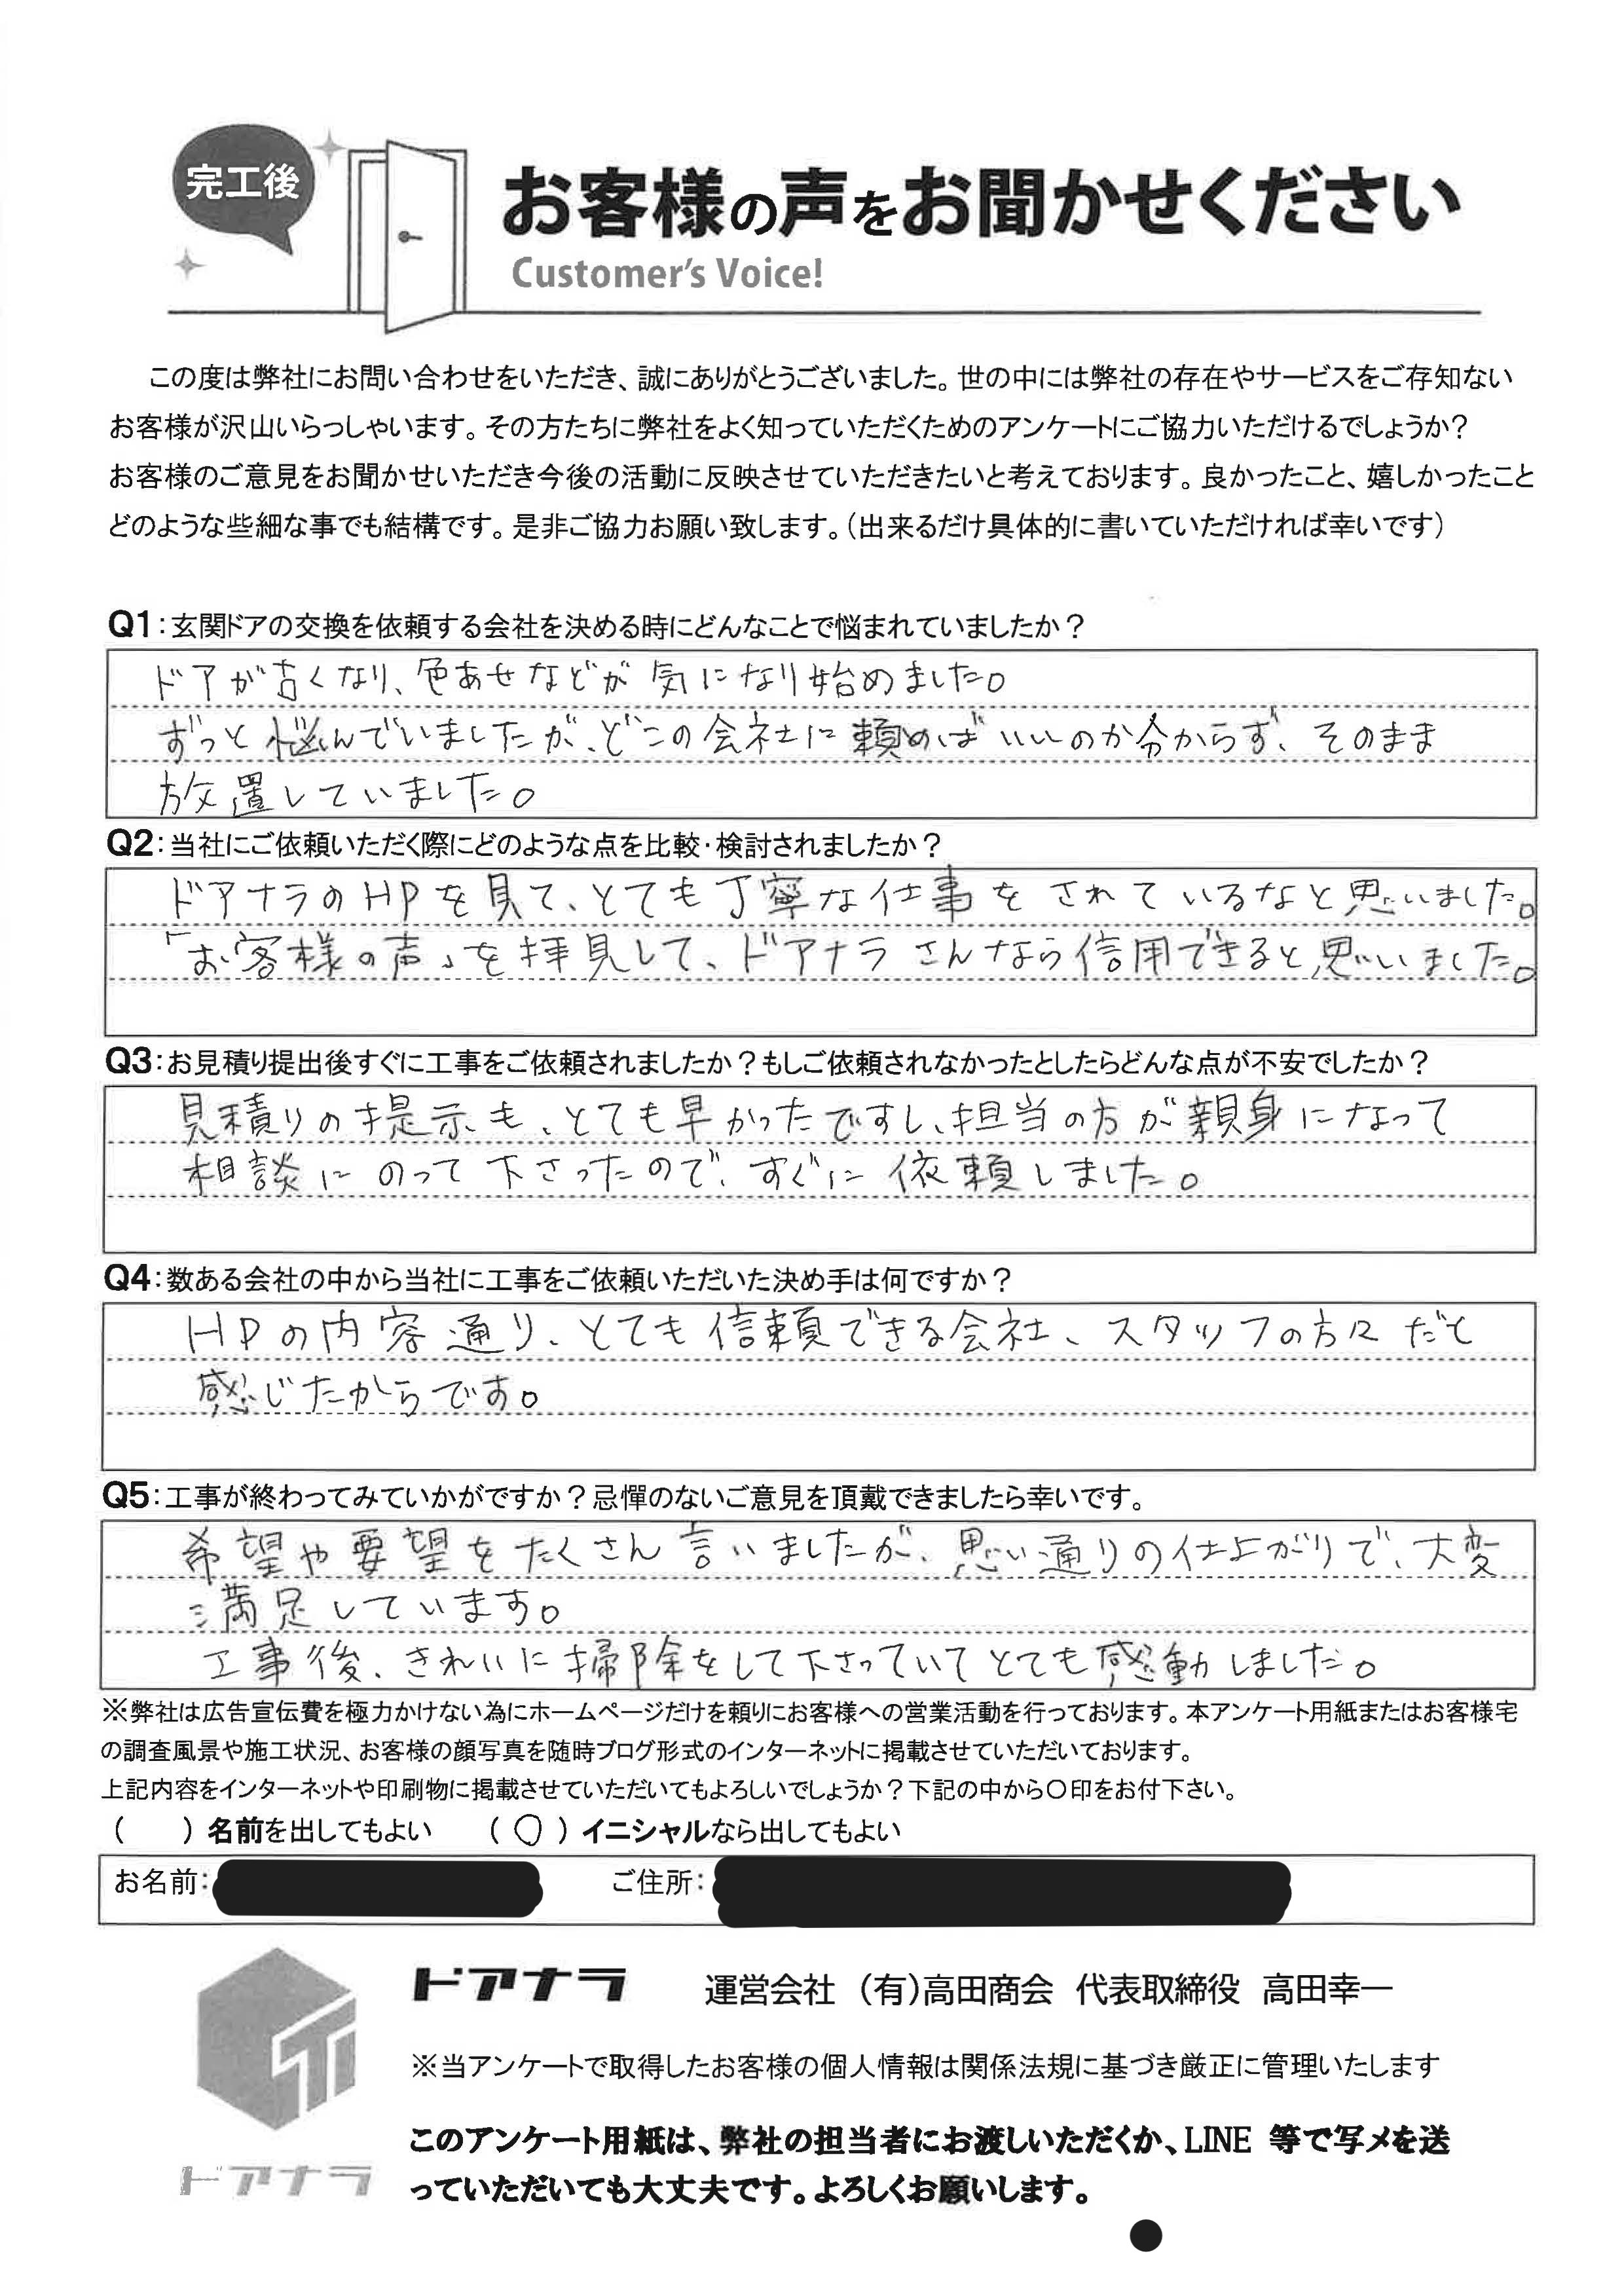 完工後
お客様の声をお聞かせください
Customer's Voice!
この度は弊社にお問い合わせをいただき、誠にありがとうございました。世の中には弊社の存在やサービスをご存知ない
お客様が沢山いらっしゃいます。その方たちに弊社をよく知っていただくためのアンケートにご協力いただけるでしょうか？
お客様のご意見をお聞かせいただき今後の活動に反映させていただきたいと考えております。良かったこと、嬉しかったこと
どのような些細な事でも結構です。是非ご協力お願い致します。（出来るだけ具体的に書いていただければ幸いです）
Q1：玄関ドアの交換を依頼する会社を決める時にどんなことで悩まれていましたか？
ドアが古くなり、色あせなどが気になり始めました。
ずっと悩んでいましたが、どこの会社に頼めばいいのか分からず、そのまま
放置していました。
Q2：当社にご依頼いただく際にどのような点を比較・検討されましたか？
ドアナラのHPを見て、とても丁寧な仕事をされているなと思いました。
「お客様の声」を拝見して、ドアナラさんなら信用できると思いました。
Q3：お見積り提出後すぐに工事をご依頼されましたか？もしご依頼されなかったとしたらどんな点が不安でしたか？
見積りの提示も、とても早かったですし、担当の方が親身になって
相談にのって下さったので、すぐに依頼しました。
Q4：数ある会社の中から当社に工事をご依頼いただいた決め手は何ですか？
HPの内容通り、とても信頼できる会社、スタッフの方々だと
感じたからです。
Q5：工事が終わってみていかがですか？忌憚のないご意見を頂戴できましたら幸いです。
希望や要望をたくさん言いましたが、思い通りの仕上がりで、大変
満足しています。
工事後、きれいに掃除をして下さっていてとても感動しました。
※弊社は広告宣伝費を極力かけない為にホームページだけを頼りにお客様への営業活動を行っております。本アンケート用紙またはお客様宅
の調査風景や施工状況、お客様の顔写真を随時ブログ形式のインターネットに掲載させていただいております。
上記内容をインターネットや印刷物に掲載させていただいてもよろしいでしょうか？下記の中から〇印をお付下さい。
（　　）名前を出してもよい　（〇）イニシャルなら出してもよい
お名前：　ご住所：
ドアナラ　運営会社　（有）高田商会　代表取締役　高田幸一
※当アンケートで取得したお客様の個人情報は関係法規に基づき厳正に管理いたします
このアンケート用紙は、弊社の担当者にお渡しいただくか、LINE 等で写メを送
っていただいても大丈夫です。よろしくお願いします。
ドアナラ